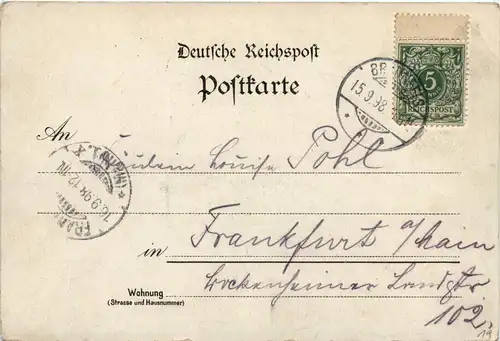 Deutsche Reichspost
Postkarte
5
REICHSPOST
15.9.98
An Fräulein Louise Pohl
16.9.98. 12-1N.
in Frankfurt a/Main
Bockenheimer Landstr
102.
Wohnung
(Strasse und Hausnummer)